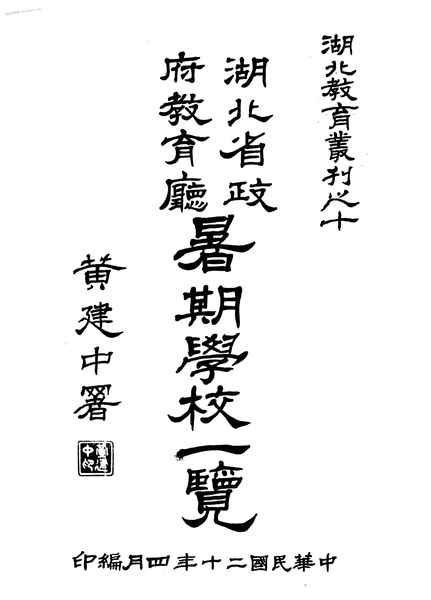 湖北教育叢刊之十
湖北省政
府教育廳
暑期學校一覽
黃建中署
黃建
中印
中華民國二十年四月編印